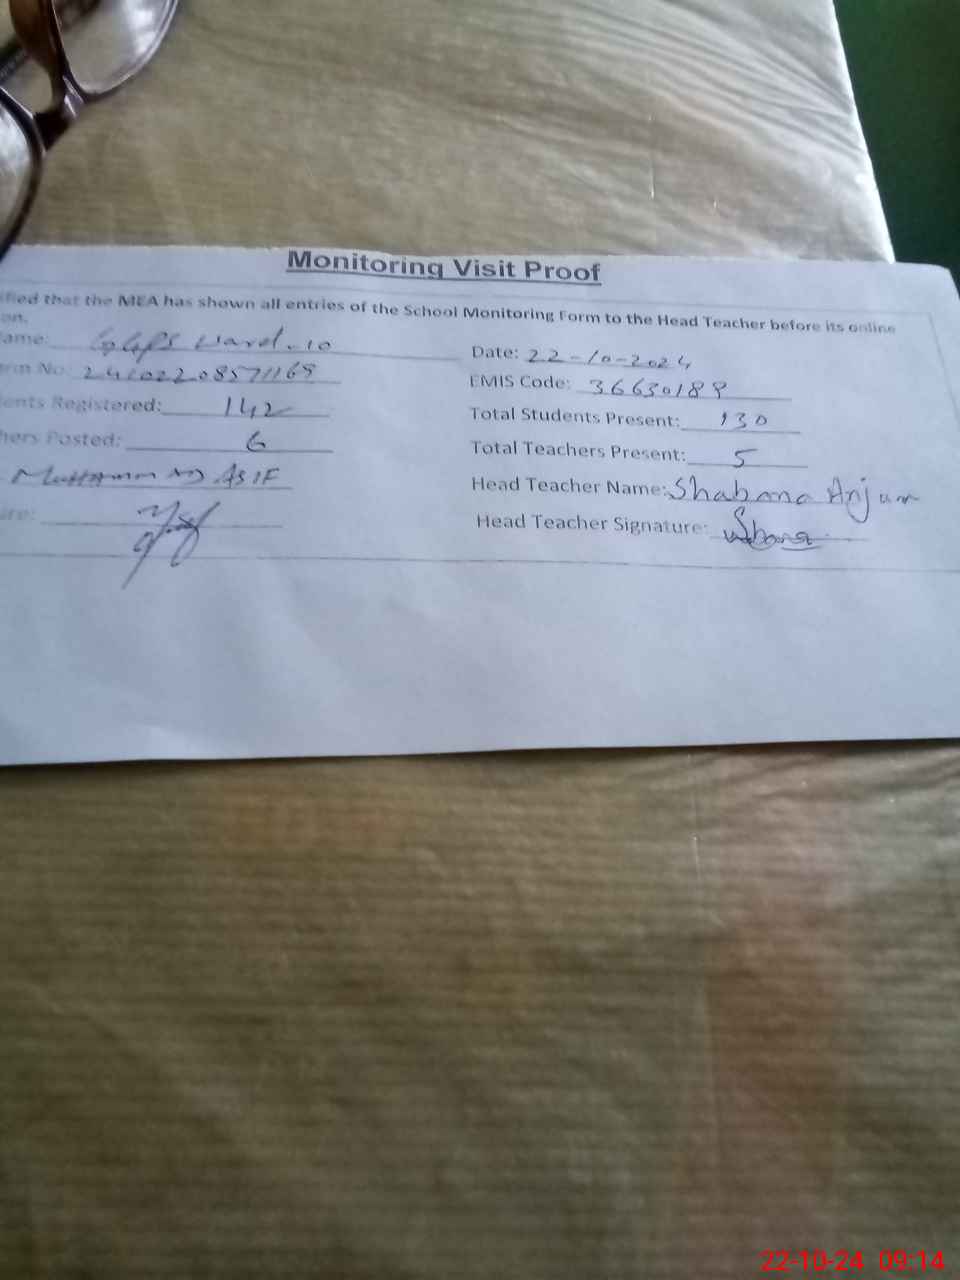 Monitoring Visit Proof
that the MEA has shown all entries of the School Monitoring Form to the Head Teacher before its online
GGPS Ward.10
Date: 22-10-2024
No. 2410220857116
EMIS Code: 36630189
Registered: 142
Total Students Present: 130
Posted: 6
Total Teachers Present: 5
Muhammad ASIF
Head Teacher Name: Shabana Anjum
Head Teacher Signature: Shbana
22-10-24 09:14